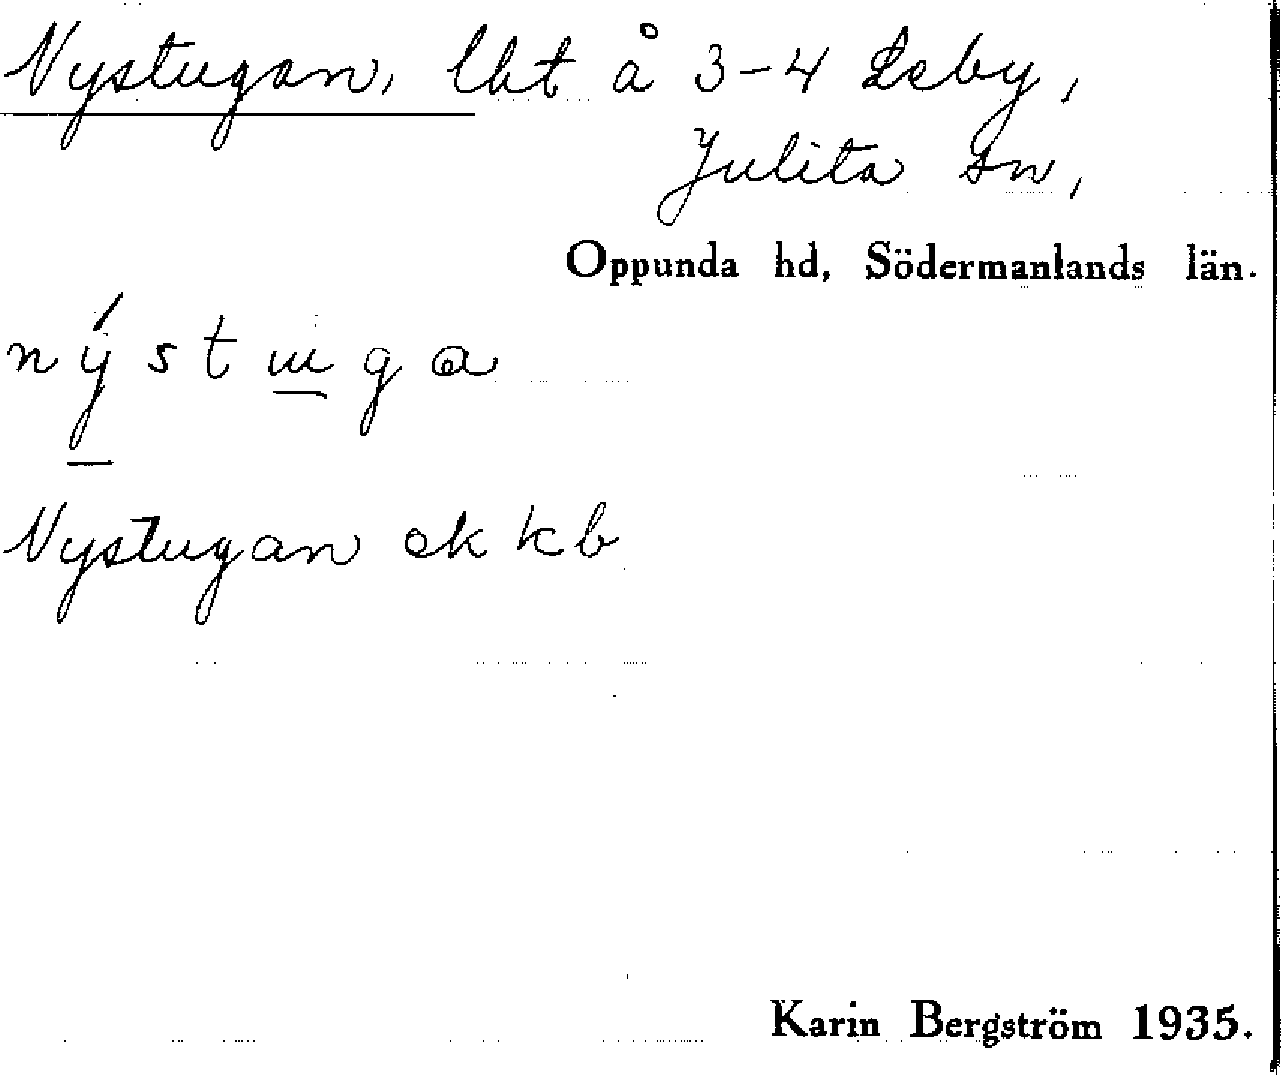 Nystugan, lht å 3-4 Leby,
Julita sn,
Oppunda hd, Södermanlands län.
nýstuga
Nystugan ek kb
Karin Bergström 1935.